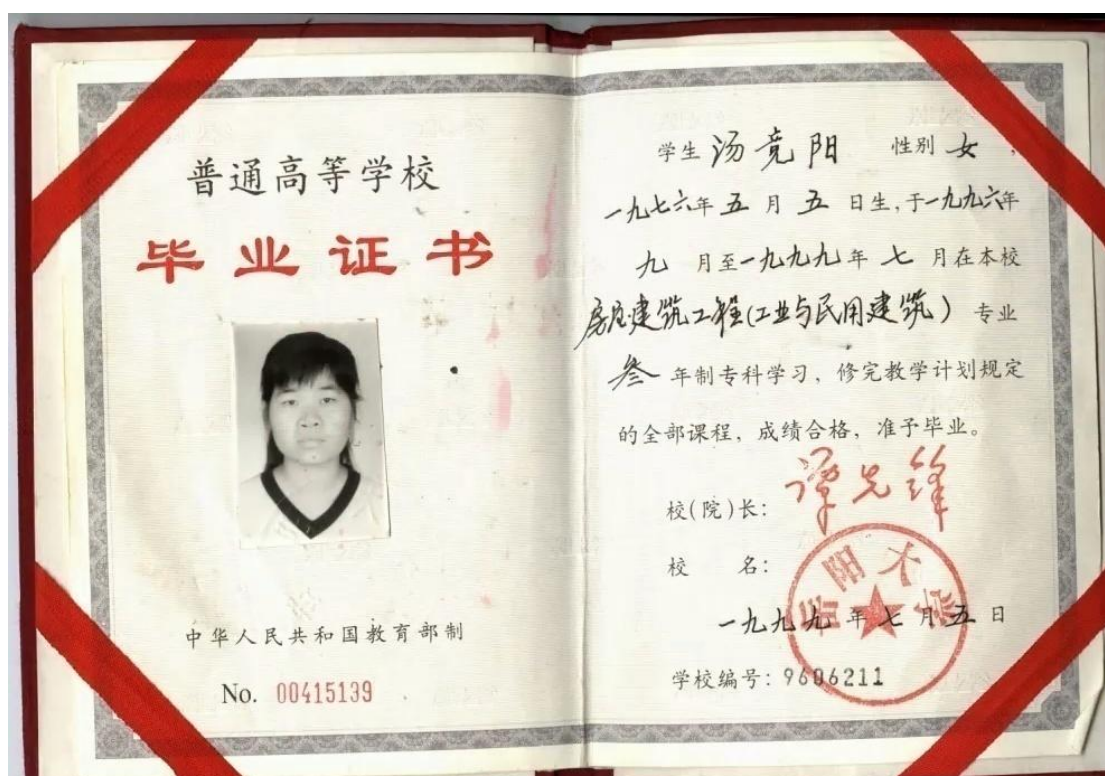 普通高等学校
毕业证书
中华人民共和国教育部制
No. 00415139
学生 汤竞阳 性别 女,
一九七六年 五 月 五 日生,于一九九六年
九 月至一九九九年 七 月在本校
房屋建筑工程(工业与民用建筑) 专业
叁 年制专科学习,修完教学计划规定
的全部课程,成绩合格,准予毕业。
校(院)长: 谭先锋
校 名: 岳阳大学
一九九九年 七 月 五 日
学校编号: 9606211